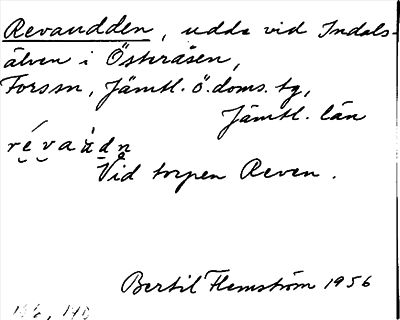 Revaudden, udde vid Indals-
älven i Österåsen,
Forssn, Jämtl. ö. doms. tg,
Jämtl. län
Vid torpen Reven.
Bertil Flemström 1956